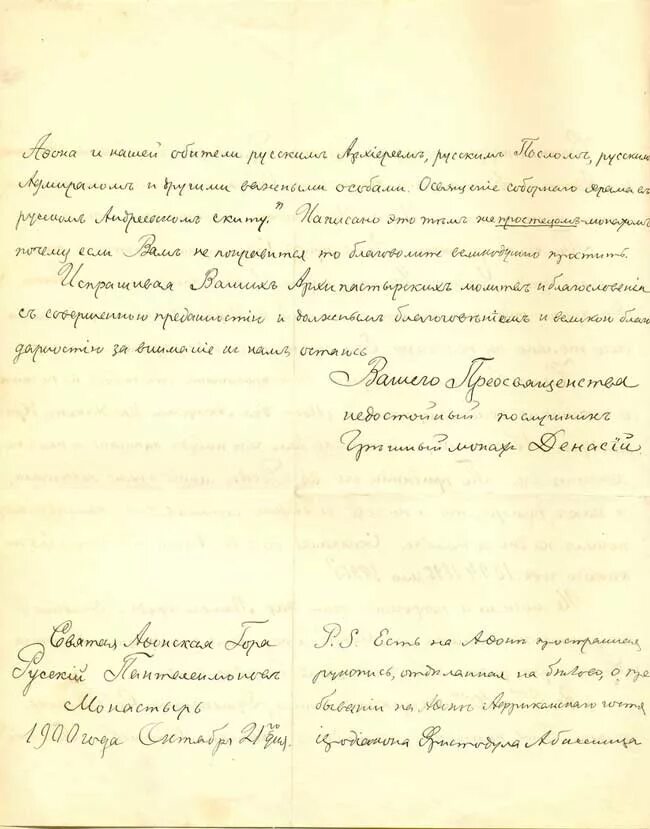 Аѳона и нашей обители русскимъ Архіереемъ, русскимъ Посломъ, русскимъ
Адмираломъ и другими важными особами. Освященіе соборнаго храма въ
русскомъ Андреевскомъ скиту." Написано это тѣмъ же простецомъ-монахомъ
почему если Вамъ не понравится то благоволите великодушно простить.
Испрашивая Вашихъ Архипастырскихъ молитвъ и благословенія
съ совершенною преданностію и должнымъ благоговѣніемъ и великою благо
дарностію за вниманіе къ намъ остаюсь
Вашего Преосвященства
недостойный послушникъ
Грѣшный монахъ Денасій.
Святая Аѳонская Гора
Русскій Пантелеимоновъ
Монастырь
1900 года Октября 21го дня.
P.S. Есть на Аѳонѣ пространная
рукопись, отдѣланная на бѣлово, о пре
бываніи на Аѳонѣ Африканскаго гостя
іеродіакона Христодула Абиссинца